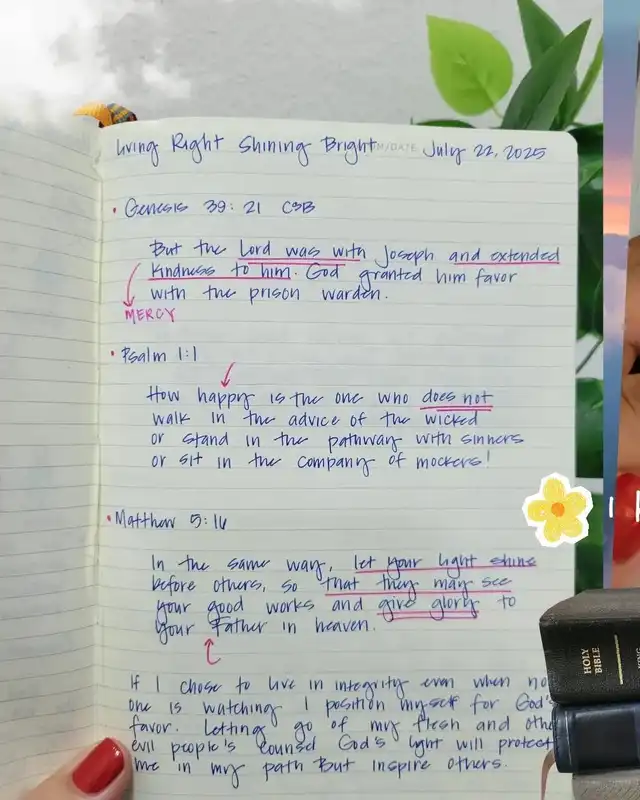 Living Right Shining Bright N/DATE July 22, 2025
• Genesis 39:21 CSB
But the Lord was with Joseph and extended
kindness to him. God granted him favor
with the prison warden.
MERCY
• Psalm 1:1
How happy is the one who does not
walk in the advice of the wicked
or stand in the pathway with sinners
or sit in the company of mockers!
• Matthew 5:16
In the same way, let your light shine
before others, so that they may see
your good works and give glory to
your Father in heaven.
If I chose to live in integrity even when no
one is watching I position myself for God's
favor. Letting go of my flesh and othe
evil people's counsel God's light will protect
me in my path But inspire others.
HOLY
BIBLE